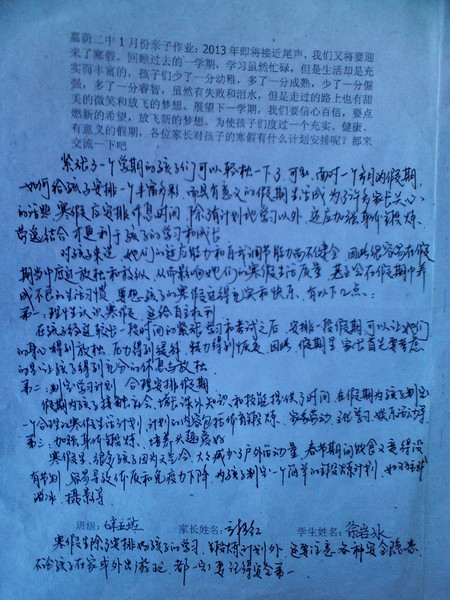 嘉荫二中1月份亲子作业：2013年即将接近尾声，我们又将要迎
来了寒假。回顾过去的一学期，学习虽然忙碌，但是生活却是充
实而丰富的，孩子们少了一分幼稚，多了一分成熟，少了一分倔
强，多了一分睿智，虽然有失败和泪水，但是走过的路上也有甜
美的微笑和放飞的梦想。展望下一学期，我们要信心百倍，要点
燃新的希望，放飞新的梦想。为使孩子们度过一个充实、健康、
有意义的假期，各位家长对孩子的寒假有什么计划安排呢？都来
交流一下吧
紧张了一个学期的孩子们可以轻松一下了，可面对一个月的假期，
如何给孩子安排一个丰富多彩，而具有意义的假期生活成为了许多家长关心
的话题，寒假应安排作息时间，除了有计划地学习以外，还应加强身体锻炼，
劳逸结合才更利于孩子的学习和成长
对孩子来说，她们的适应能力和自我调节能力尚不健全，因此很容易在假
期当中过于放松和放纵，从而影响她们的寒假生活质量，甚至会在假期中养
成不良的生活习惯，要想孩子的寒假过得充实和快乐，有以下几点：
第一：理性认识寒假，还给自主权利
在孩子经过较长一段时间的紧张学习和考试之后，安排一段假期可以让她们
的身心得到放松，压力得到缓解，精力得到恢复，因此，假期里家长首先要考虑
的是让孩子得到充分的休息与放松
第二：制定学习计划，合理安排假期
假期为孩子接触社会，增长课外知识和技能提供了时间，在假期为孩子制定
一个合理的寒假生活计划，计划的内容包括体育锻炼、家务劳动、班级学习、娱乐活动等
第三：加强身体锻炼，培养兴趣爱好
寒假里，很多孩子因为天气冷，大大减少了户外运动量，春节期间饮食又变得没
有节制，容易导致体质和免疫力下降，为孩子制定一个简单的锻炼计划，如
滑冰、摄影等
班级：
家长姓名：
学生姓名：徐岩冰
寒假里除了安排好孩子的学习、锻炼计划外，还要注意各种安全隐患，
不论孩子在家或外出游玩，都一定要记得安全第一